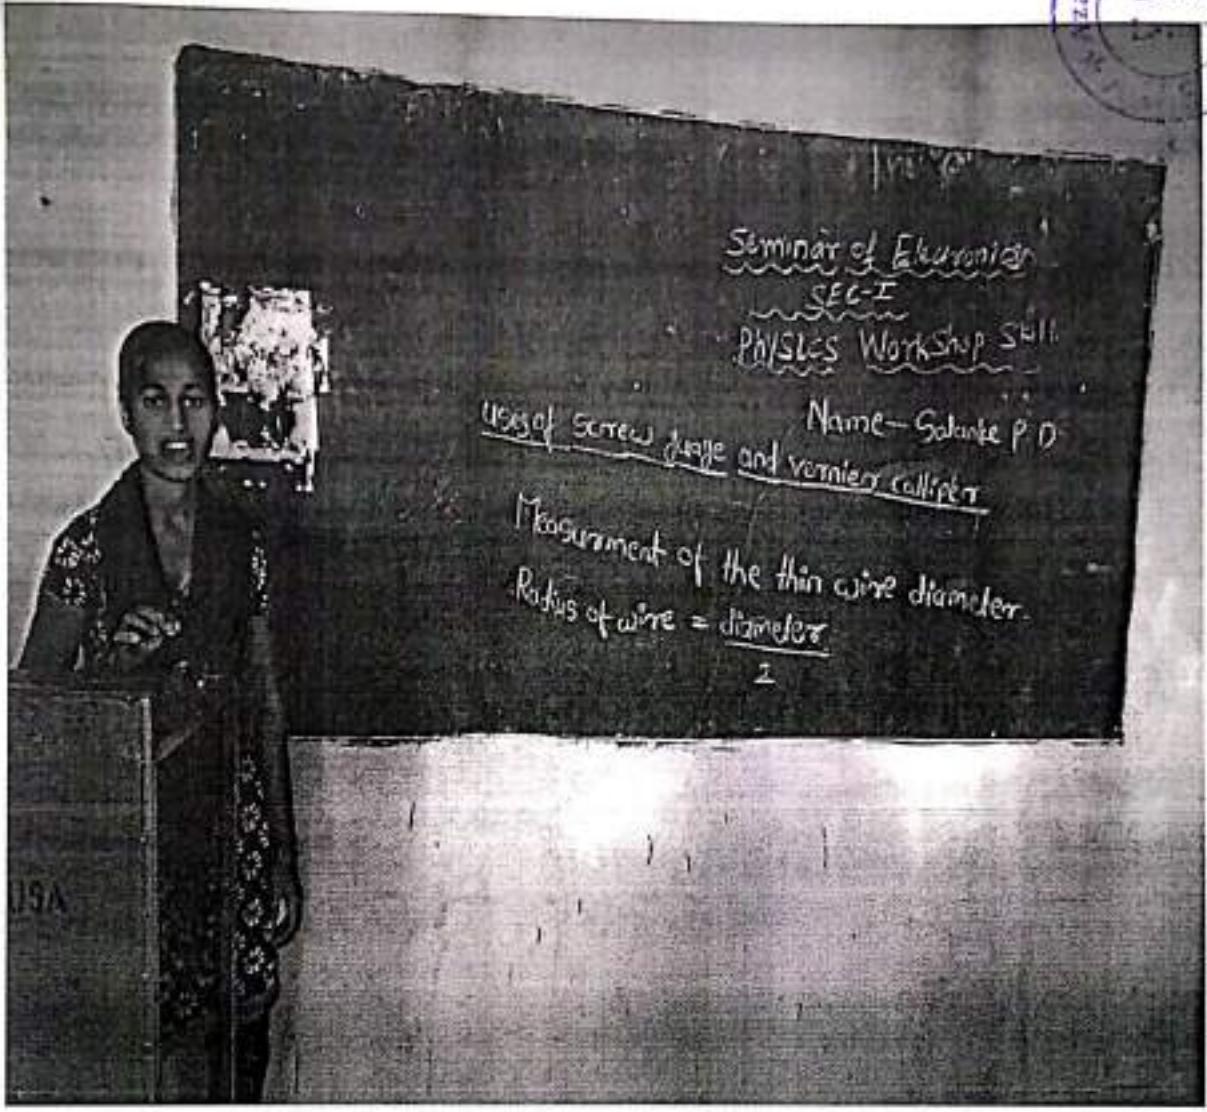 Seminar of Electronics
SEC-I
Physics Workshop Skill
Name - Solanke P D
uses of Screw guage and vernier calliper
Measurment of the thin wire diameter.
Radius of wire = diameter
2
USA